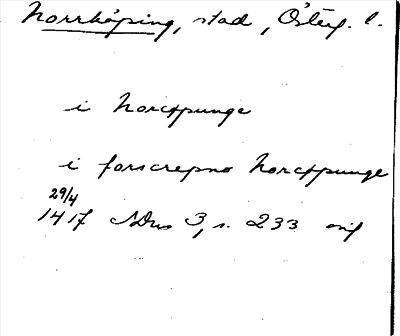 Norrköping, stad, Österg. l.
i Norcppunge
i forscrepno Norcppunge
29/4
1417 SDns 3, s. 233 orig